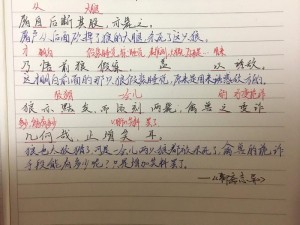 从 大腿
屠自后断其股,亦毙之。
屠户从后面砍掉了狼的大腿,杀死了这只狼
才 明白
乃悟前狼假寐,盖以诱敌
这才明白前面的那只狼假装睡觉,原来是用来诱惑敌方的。
狡猾 一会儿
狼亦黠矣,而顷刻两毙,禽兽之变诈
增加笑料 罢了
几何哉,止增笑耳。
狼也太狡猾了,可是一会儿两只狼都被杀死了,禽兽的诡诈
手段能有多少呢?只是增加笑料罢了。
——《聊斋志异》